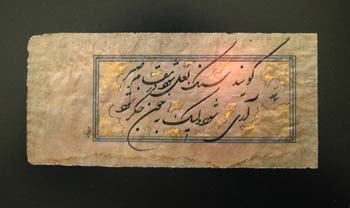 گویند سنگ لعل شود در مقام صبر
آری شود ولیک به خون جگر شود